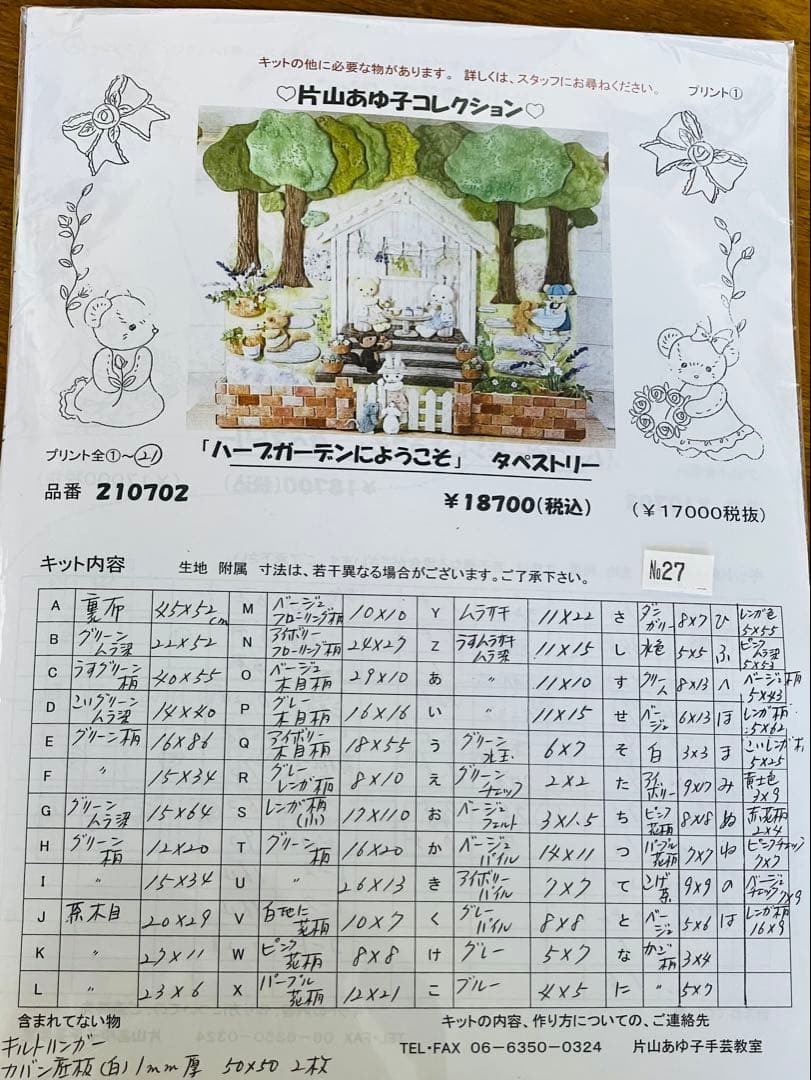 キットの他に必要な物があります。 詳しくは、スタッフにお尋ねください。 プリント①
♡片山あゆ子コレクション♡
プリント全①～㉑ 「ハーブガーデンにようこそ」 タペストリー
品番 210702 ￥18700(税込) (￥17000税抜)
キット内容 生地 附属 寸法は、若干異なる場合がございます。ご了承下さい。 №27
A 裏布 45×52cm M ベージュフローリング柄 10×10 Y ムラサキ 11×22 さ ダンガリー 8×7 ひ レンガ色 5×55
B グリーンムラ染 22×52 N アイボリーフローリング柄 24×27 Z うすムラサキムラ染 11×15 し 水色 5×5 ふ ピンクムラ染 5×53
C うすグリーン柄 40×55 O ベージュ木目柄 29×10 あ 〃 11×10 す グリーン 8×13 へ ベージュ柄 5×43
D こいグリーンムラ染 14×40 P グレー木目柄 16×16 い 〃 11×15 せ ベージュ 6×13 ほ レンガ柄 5×62
E グリーン柄 16×86 Q アイボリー木目柄 18×55 う グリーン水玉 6×7 そ 白 3×3 ま こいレンガ 5×25
F 〃 15×34 R グレーレンガ柄 8×10 え グリーンチェック 2×2 た アイボリー 9×17 み 黄土色 3×9
G グリーンムラ染 15×64 S レンガ柄(小) 17×110 お ベージュフェルト 3×1.5 ち ピンク花柄 8×18 ぬ 赤花柄 2×4
H グリーン柄 12×20 T グリーン柄 16×20 か ベージュパイル 14×11 つ パープル花柄 7×7 ね ピンクチェック 7×7
I 〃 15×34 U 〃 26×13 き アイボリーパイル 7×7 て こげ茶 9×9 の ベージュチェック 7×9
J 茶木目 20×29 V 白地に花柄 10×7 く グレーパイル 8×8 と ベージュ 5×6 は レンガ柄 16×9
K 〃 27×11 W ピンク花柄 8×8 け グレー 5×7 な かご柄 3×4
L 〃 23×6 X パープル花柄 12×21 こ ブルー 4×5 に 〃 5×7
含まれてない物 キットの内容、作り方についての、ご連絡先
キルトハンガー TEL・FAX 06-6350-0324 片山あゆ子手芸教室
カバン底板(白)1mm厚 50×50 2枚